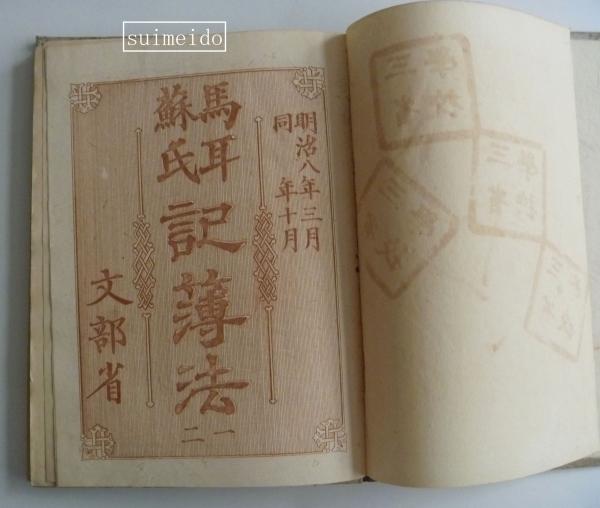 suimeido
明治八年三月
同 年十月
馬耳
蘇氏
記簿法
一
二
文部省